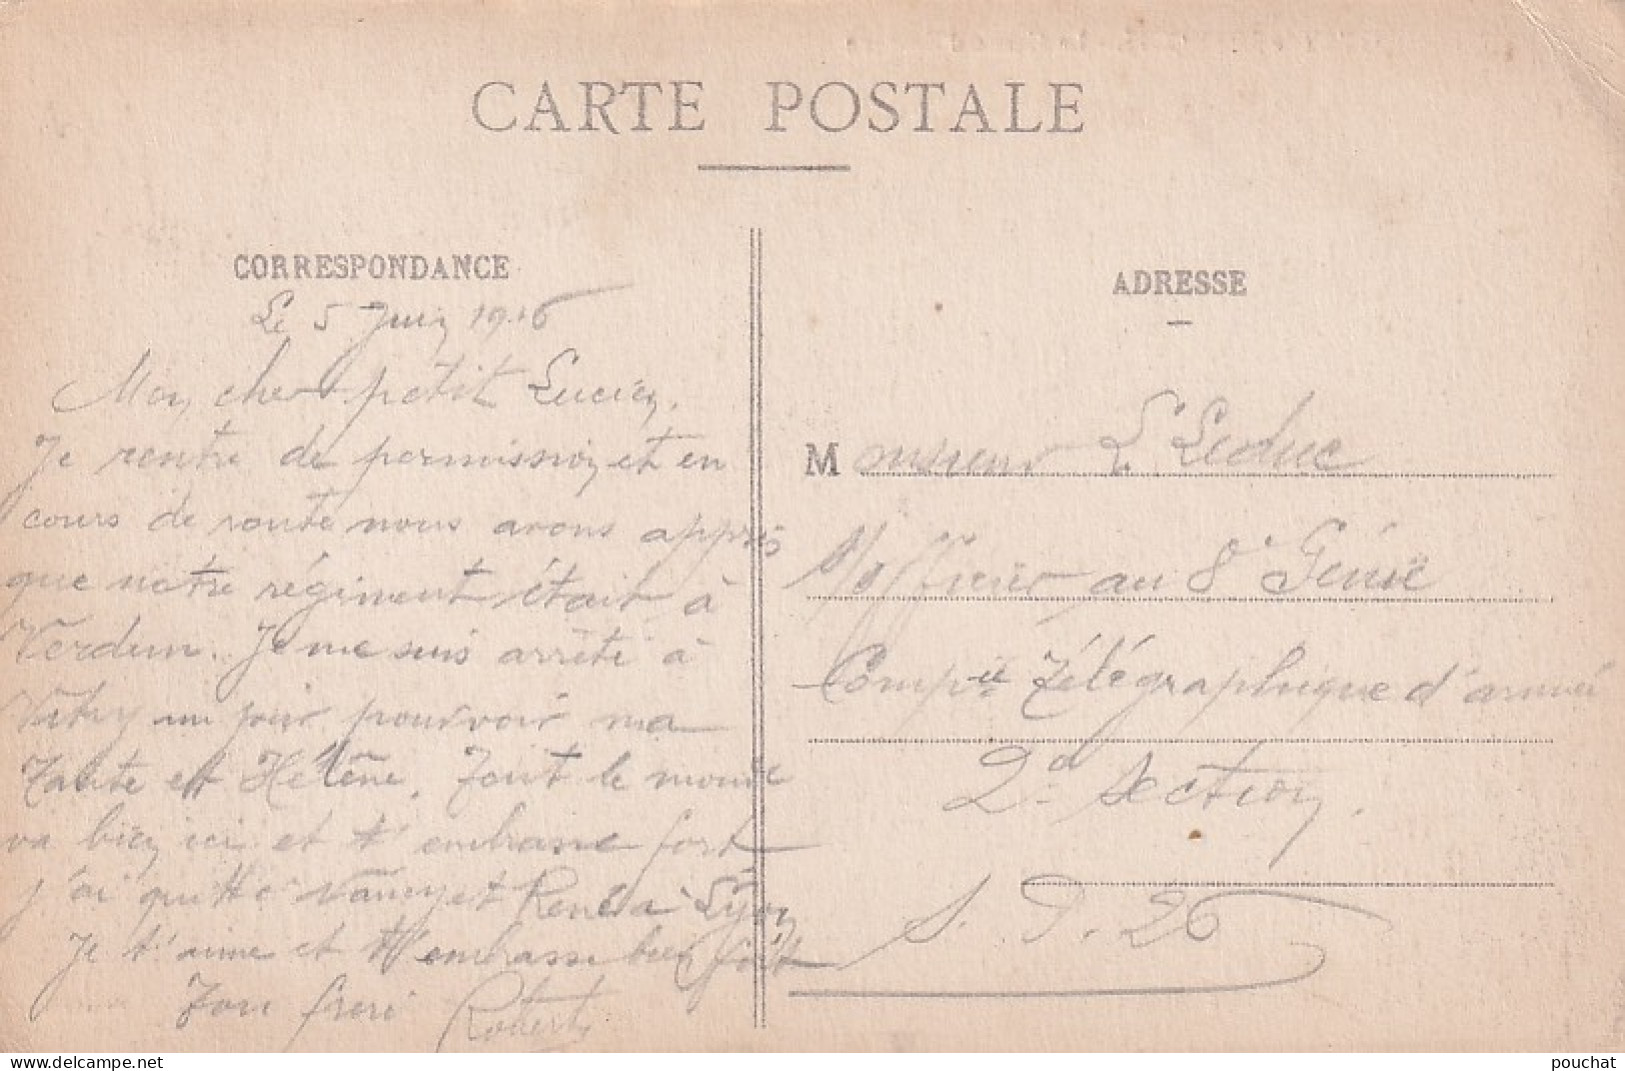 CARTE POSTALE
CORRESPONDANCE
Le 5 Juin 1916
Mon cher petit Lucien,
Je rentre de permission et en
cours de route nous avons appris
que notre régiment était à
Verdun. Je me suis arrêté à
Vitry un jour pour voir ma
Tante et Hélène. Tout le monde
va bien ici et t'embrasse fort
j'ai quitté Nancy et René à Lyon
Je t'aime et t'embrasse bien fort
Ton frère Robert
ADRESSE
Monsieur L. Leduc
S/Officier au 8e Génie
Compie Télégraphique d'armée
2d Section.
S. P. 26
pouchat